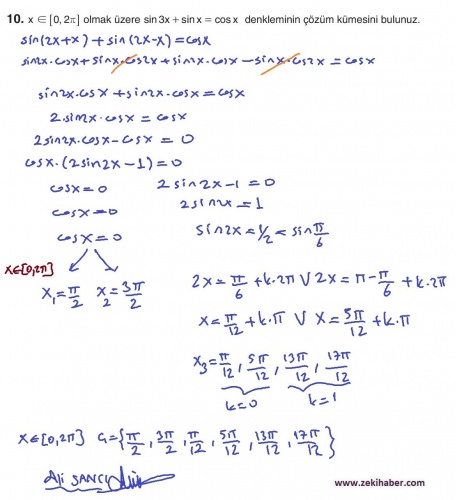 10. x ∈ [0, 2π] olmak üzere sin 3x + sin x = cos x denkleminin çözüm kümesini bulunuz.
sin(2x+x) + sin(2x-x) = cosx
sin2x·cosx + sinx·cos2x + sin2x·cosx - sinx·cos2x = cosx
sin2x·cosx + sin2x·cosx = cosx
2·sin2x·cosx = cosx
2sin2x·cosx - cosx = 0
cosx·(2sin2x-1) = 0
cosx=0 2sin2x-1=0
cosx=0 2sin2x=1
cosx=0 sin2x=1/2=sin π/6
x∈[0,2π]
x₁=π/2 x₂=3π/2 2x=π/6+k·2π V 2x=π-π/6+k·2π
x=π/12+k·π V x=5π/12+k·π
x₃=π/12, 5π/12, 13π/12, 17π/12
k=0 k=1
x∈[0,2π] Ç={π/2, 3π/2, π/12, 5π/12, 13π/12, 17π/12}
Ali SANCI
www.zekihaber.com